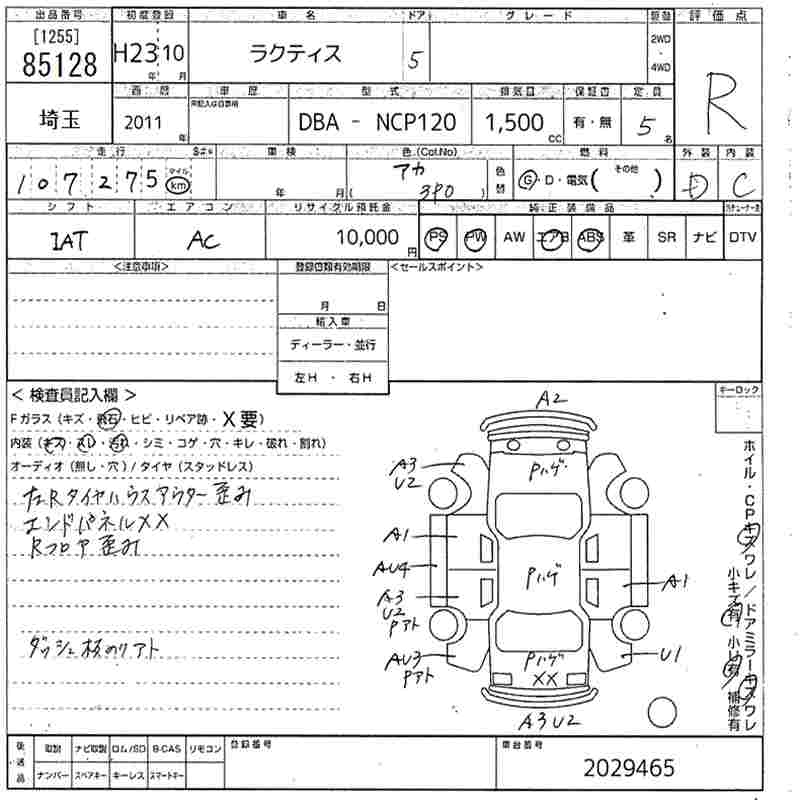 出品番号 初度登録 車名 ドア グレード 駆動 評価点
[1255]
85128 H23 10 ラクティス 5 2WD・4WD R
年 月
埼玉 西暦 車歴 型式 排気量 保証書 定員
未記入は自家用
2011 年 DBA - NCP120 1,500 cc 有・無 5 名
走行 車検 色(Col.No) 燃料 外装 内装
107275 マイル km 年 月 アカ ( 3P0 ) 色替 G・D・電気( その他 ) D C
シフト エアコン リサイクル預託金 純正装備品
IAT AC 10,000 円 PS PW AW エアB ABS 革 SR ナビ DTV
<注意事項> 登録書類有効期限 <セールスポイント>
月 日
輸入車
ディーラー・並行
左H ・ 右H
< 検査員記入欄 > キーロック
Fガラス (キズ・飛石・ヒビ・リペア跡・X要)
内装 (キズ・スレ・汚れ・シミ・コゲ・穴・キレ・破れ・割れ)
オーディオ (無し・穴) / タイヤ (スタッドレス)
左Rタイヤハウスアウター歪み
エンドパネルXX
Rフロア歪み
ダッシュ板のリアト
A2
Pハゲ
A3
U2
A1
AU4
Pハゲ
A1
A3
U2
Pアト
AU3
Pアト
Pハゲ
XX
U1
A3U2
ホイル・CPキズワレ/ドアミラーキズワレ
小キズ有 小凹有/補修有
後送品 取説 ナビ取説 ロム/SD B-CAS リモコン 登録番号 車台番号
ナンバー スペアキー キーレス スマートキー 2029465